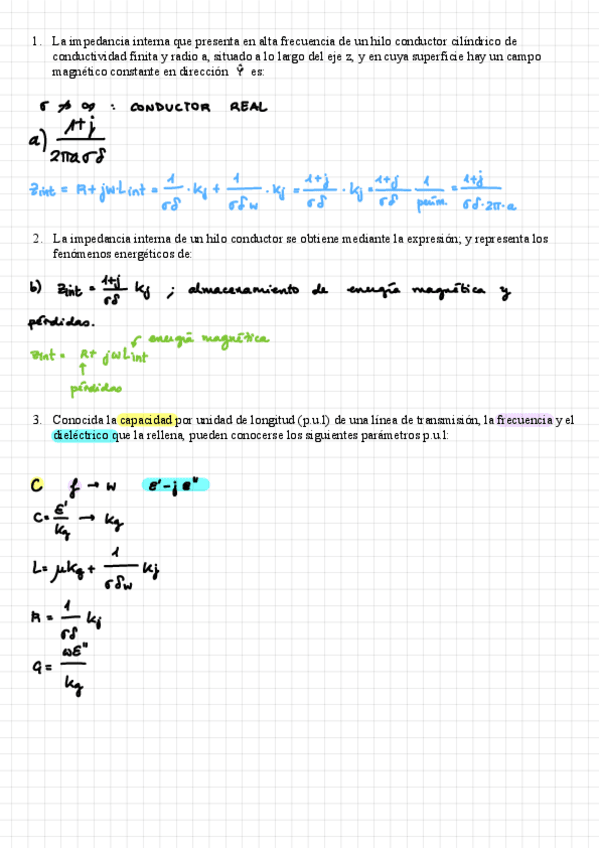 1. La impedancia interna que presenta en alta frecuencia de un hilo conductor cilíndrico de
conductividad finita y radio a, situado a lo largo del eje z, y en cuya superficie hay un campo
magnético constante en dirección Ŷ es:
σ ≠ ∞ : CONDUCTOR REAL
a) 1+j / 2πaσδ
Zint = R + jw·Lint = 1/σδ · kj + 1/σδw · kj = 1+j/σδ · kj = 1+j/σδ 1/perím. = 1+j/σδ·2π·a
2. La impedancia interna de un hilo conductor se obtiene mediante la expresión; y representa los
fenómenos energéticos de:
b) Zint = 1+j/σδ kj ; almacenamiento de energía magnética y
pérdidas.
energía magnética
Zint = R+ jwLint
pérdidas
3. Conocida la capacidad por unidad de longitud (p.u.l) de una línea de transmisión, la frecuencia y el
dieléctrico que la rellena, pueden conocerse los siguientes parámetros p.u.l:
C f → w ε'-j ε"
C = ε'/kg → kg
L = μkg + 1/σδw kj
R = 1/σδ kj
G = wε"/kg